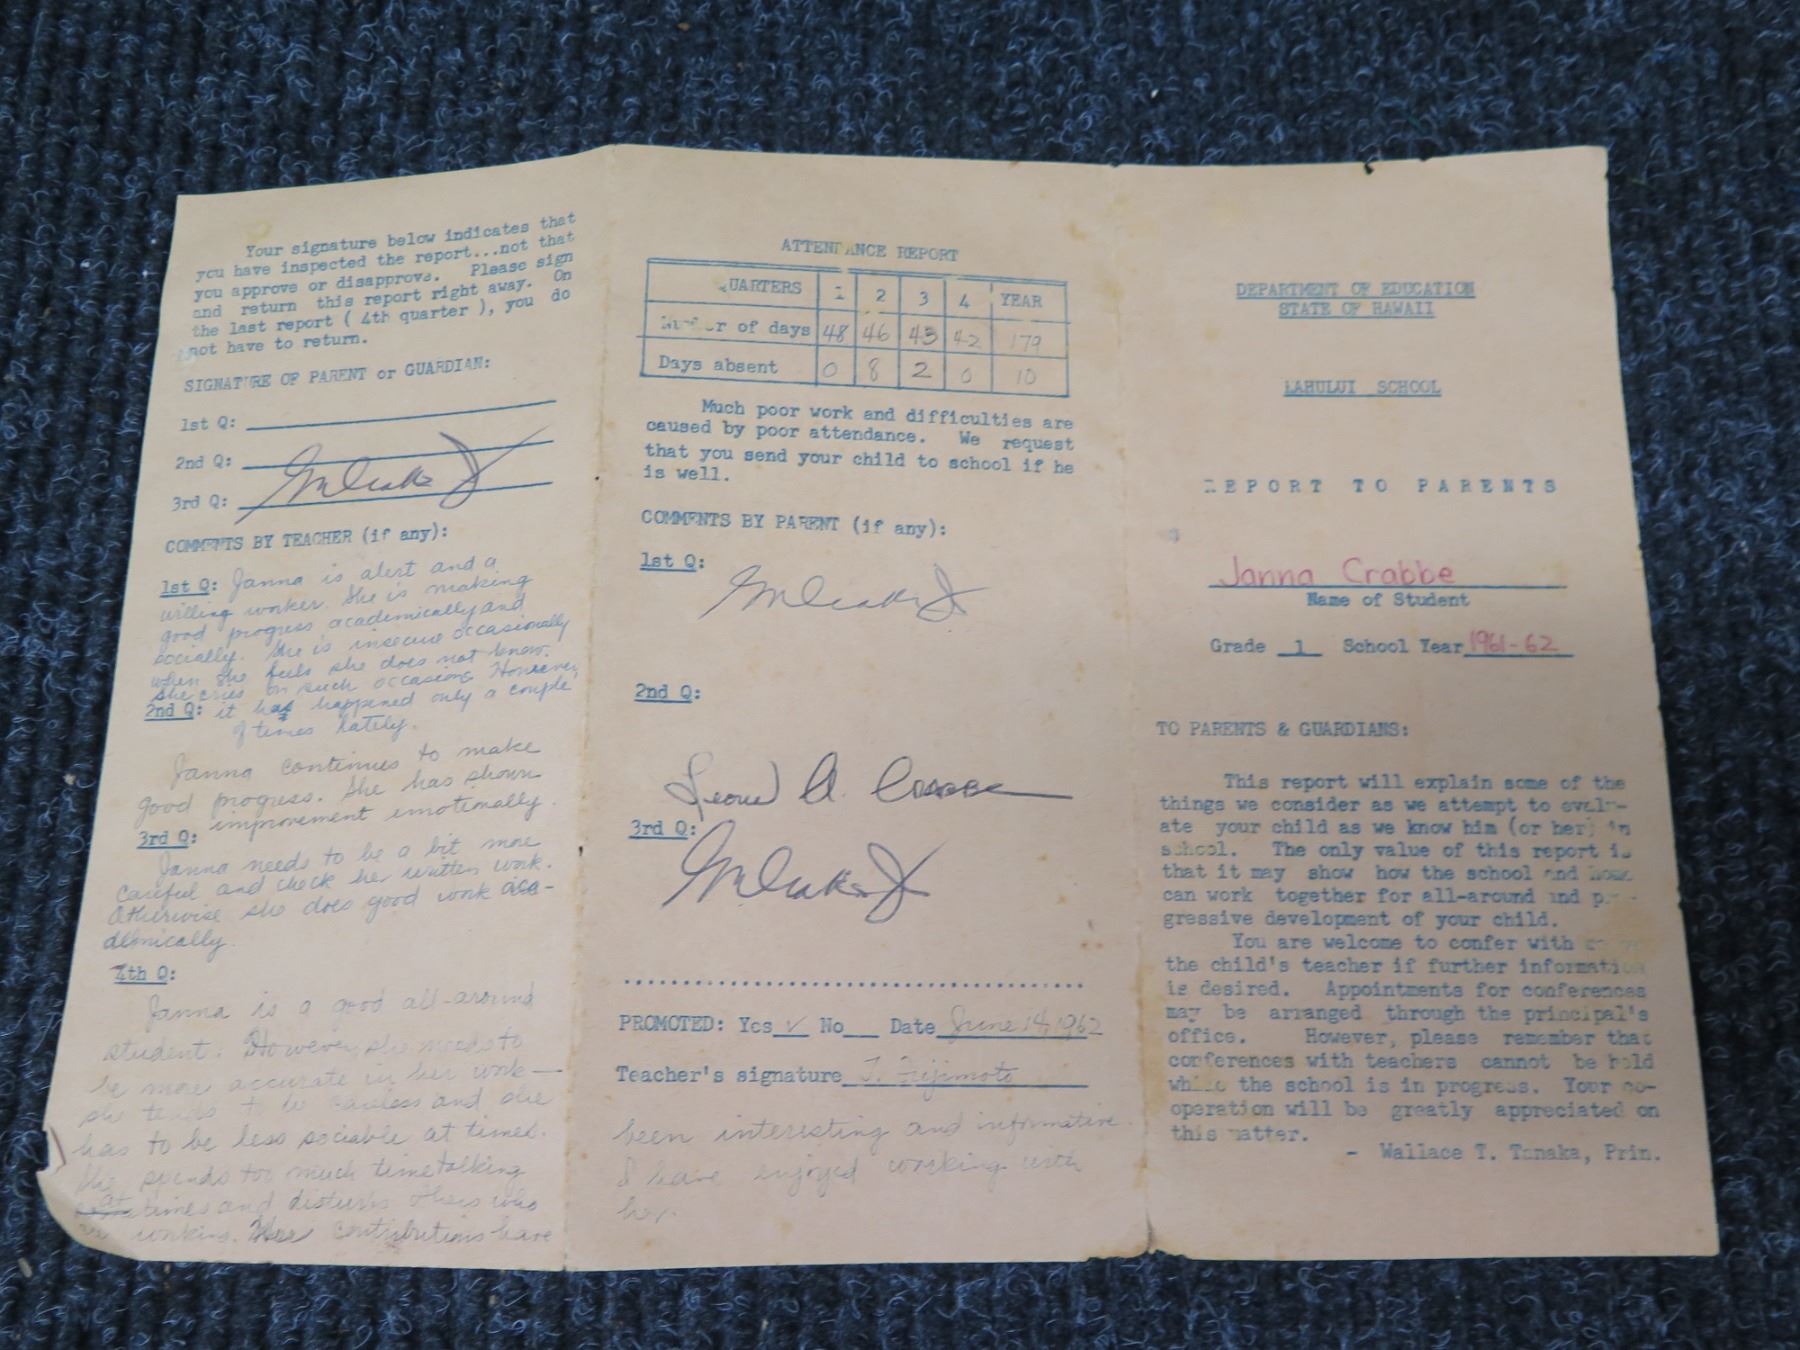 Your signature below indicates that
you have inspected the report...not that
you approve or disapprove. Please sign
and return this report right away. On
the last report ( 4th quarter ), you do
not have to return.
SIGNATURE OF PARENT or GUARDIAN:
1st Q:
2nd Q:
3rd Q:
COMMENTS BY TEACHER (if any):
1st Q: Janna is alert and a
willing worker. She is making
good progress academically and
socially. She is insecure occasionally
when she feels she does not know.
She cries on such occasions However,
2nd Q: it has happened only a couple
of times lately.
Janna continues to make
good progress. She has shown
improvement emotionally.
3rd Q:
Janna needs to be a bit more
careful and check her written work.
Otherwise she does good work aca-
demically.
4th Q:
Janna is a good all-around
student. However, she needs to
be more accurate in her work—
she tends to be careless and she
has to be less sociable at times.
She spends too much time talking
at times and disturbs others who
are working. Her contributions have
ATTENDANCE REPORT
QUARTERS 1 2 3 4 YEAR
Number of days 48 46 43 42 179
Days absent 0 8 2 0 10
Much poor work and difficulties are
caused by poor attendance. We request
that you send your child to school if he
is well.
COMMENTS BY PARENT (if any):
1st Q:
2nd Q:
A. Crabbe
3rd Q:
PROMOTED: Yes ✓ No__ Date June 14, 1962
Teacher's signature J. Fujimoto
been interesting and informative.
I have enjoyed working with
her.
DEPARTMENT OF EDUCATION
STATE OF HAWAII
KAHULUI SCHOOL
REPORT TO PARENTS
Janna Crabbe
Name of Student
Grade 1 School Year 1961-62
TO PARENTS & GUARDIANS:
This report will explain some of the
things we consider as we attempt to evalu-
ate your child as we know him (or her) in
school. The only value of this report is
that it may show how the school and home
can work together for all-around and pro-
gressive development of your child.
You are welcome to confer with
the child's teacher if further information
is desired. Appointments for conferences
may be arranged through the principal's
office. However, please remember that
conferences with teachers cannot be held
while the school is in progress. Your co-
operation will be greatly appreciated on
this matter.
- Wallace T. Tanaka, Prin.